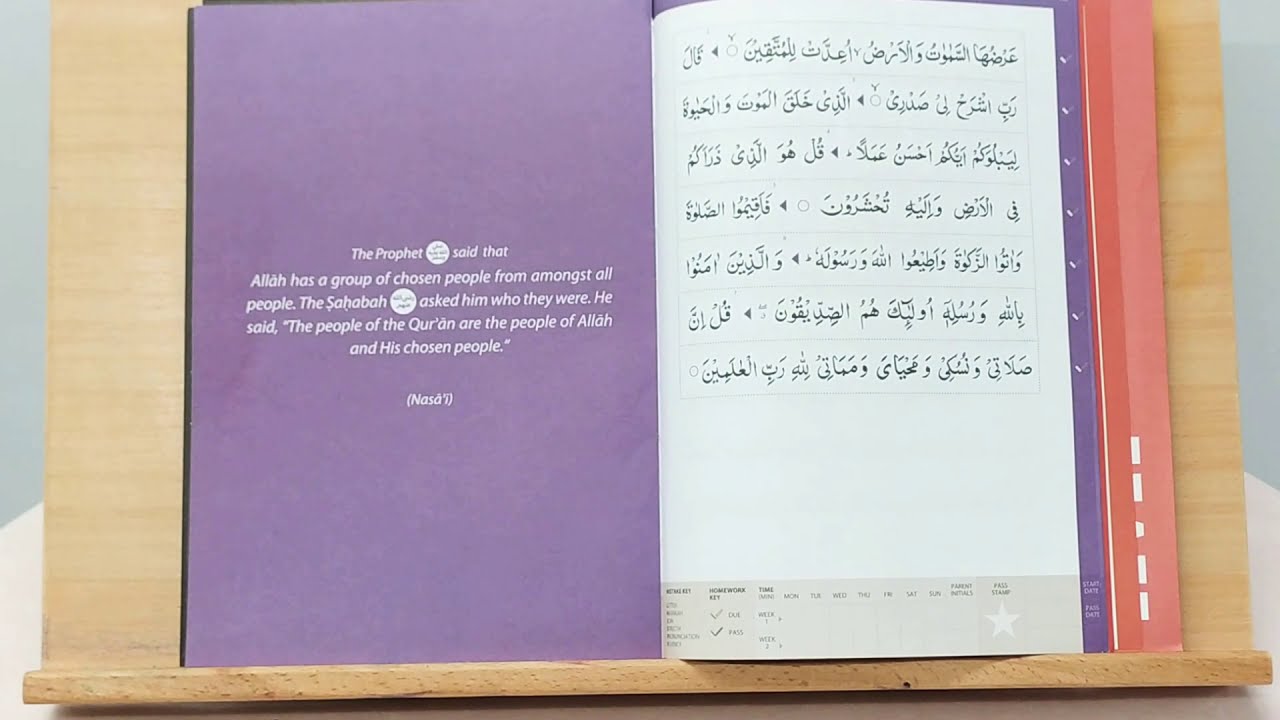 The Prophet ﷺ said that
Allāh has a group of chosen people from amongst all
people. The Ṣaḥabah asked him who they were. He
said, “The people of the Qur’ān are the people of Allāh
and His chosen people.”
(Nasā’i)
عَرْضُهَا السَّمٰوٰتُ وَالْاَرْضُ ۙ اُعِدَّتْ لِلْمُتَّقِيْنَ ۙ○ ◂ قَالَ
رَبِّ اشْرَحْ لِىْ صَدْرِىْ ۙ○ ◂ الَّذِىْ خَلَقَ الْمَوْتَ وَ الْحَيٰوةَ
لِيَبْلُوَكُمْ اَيُّكُمْ اَحْسَنُ عَمَلًا ؕ ◂ قُلْ هُوَ الَّذِىْ ذَرَاَكُمْ
فِى الْاَرْضِ وَاِلَيْهِ تُحْشَرُوْنَ ○ ◂ فَاَقِيْمُوا الصَّلٰوةَ
وَاٰتُوا الزَّكٰوةَ وَاَطِيْعُوا اللّٰهَ وَرَسُوْلَهٗ ؕ ◂ وَالَّذِيْنَ اٰمَنُوْا
بِاللّٰهِ وَرُسُلِهٖۤ اُولٰٓئِكَ هُمُ الصِّدِّيْقُوْنَ ۖ ◂ قُلْ اِنَّ
صَلَاتِىْ وَنُسُكِىْ وَمَحْيَاىَ وَمَمَاتِىْ لِلّٰهِ رَبِّ الْعٰلَمِيْنَ ○
HOMEWORK KEY TIME (MIN) MON TUE WED THU FRI SAT SUN PARENT INITIALS PASS STAMP START DATE
DUE WEEK 1 PASS DATE
PASS WEEK 2